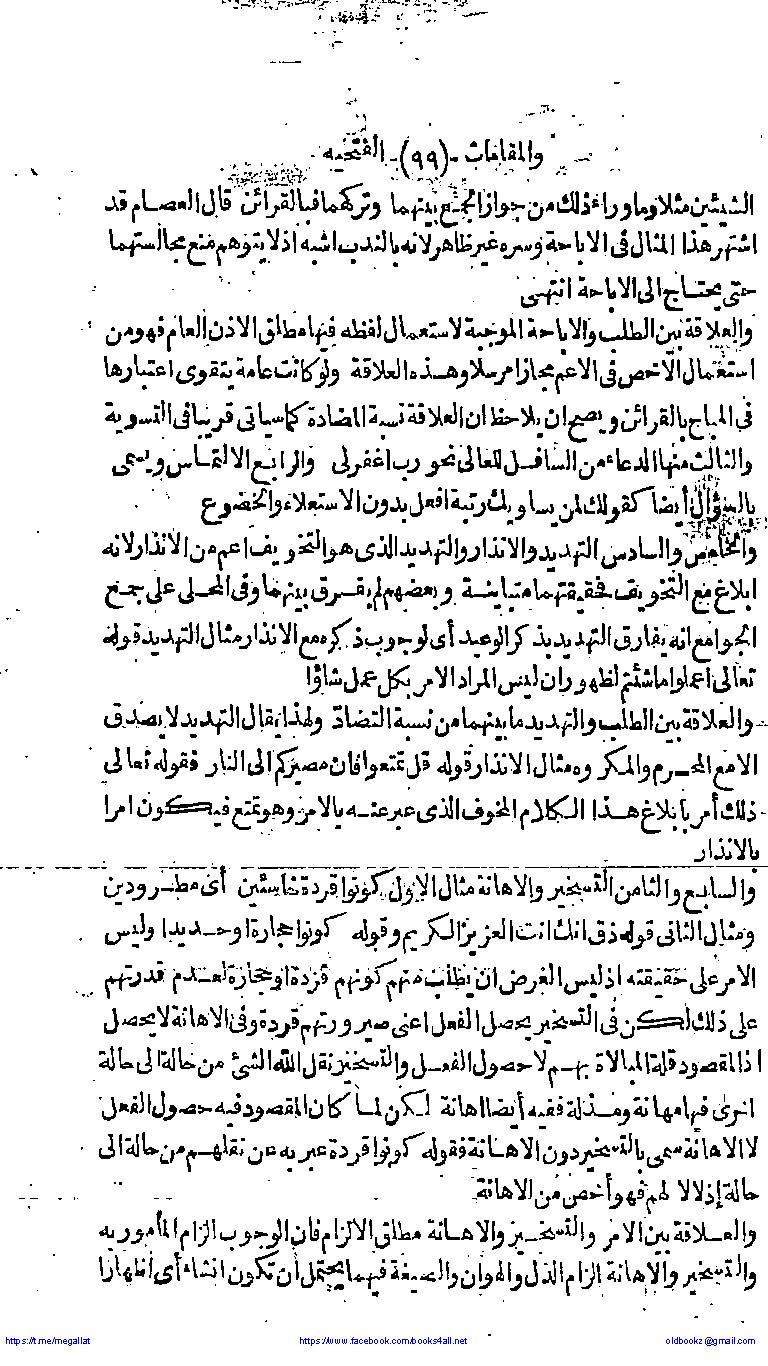 والمقامات -(٩٩)- الفتحيه
الشيئين مثلا وما وراء ذلك من جواز الجمع بينهما وتركهما فبالقرائن قال العصام قد
اشتهر هذا المثال فى الاباحة وسره غير ظاهر لانه بالندب اشبه اذ لا يتوهم منع مجالستهما
حتى يحتاج الى الاباحة انتهى
والعلاقة بين الطلب والاباحة الموجبة لاستعمال لفظه فيها مطلق الاذن العام فهو من
استعمال الاخص فى الاعم مجازا مرسلا وهذه العلاقة ولو كانت عامة يتقوى اعتبارها
فى المباح بالقرائن ويصح ان يلاحظ ان العلاقة نسبة المضادة كما سياتى قريبا فى التسوية
والثالث منها الدعاء من السافل للعالى نحو رب اغفر لى والرابع الالتماس ويسمى
بالسؤال أيضا كقولك لمن يساويك رتبة افعل بدون الاستعلاء والخضوع
والخامس والسادس التهديد والانذار والتهديد الذى هو التخويف اعم من الانذار لانه
ابلاغ مع التخويف فحقيقتهما متباينة وبعضهم لم يفرق بينهما وفى المحلى على جمع
الجوامع انه يفارق التهديد بذكر الوعيد أى لوجوب ذكره مع الانذار مثال التهديد قوله
تعالى اعملوا ما شئتم لظهور ان ليس المراد الامر بكل عمل شاؤا
والعلاقة بين الطلب والتهديد ما بينهما من نسبة التضاد ولهذا يقال التهديد لا يصدق
الا مع المحرم والمكر وه ومثال الانذار قوله قل تمتعوا فان مصيركم الى النار فقوله تعالى
ذلك أمر بابلاغ هذا الكلام المخوف الذى عبر عنه بالامر وهو تمتع فيكون امرا
بالانذار
والسابع والثامن التسخير والاهانة مثال الاول كونوا قردة خاسئين أى مطرودين
ومثال الثانى قوله ذق انك انت العزيز الكريم وقوله كونوا حجارة او حديدا وليس
الامر على حقيقته اذ ليس الغرض ان يطلب منهم كونهم قردة او حجارة لعدم قدرتهم
على ذلك لكن فى التسخير يحصل الفعل اعنى صيرورتهم قردة وفى الاهانة لا يحصل
اذ المقصود قلة المبالاة بهم لا حصول الفعل والتسخير نقل الله الشئ من حالة الى حالة
اخرى فيها مهانة ومذلة ففيه أيضا اهانة لكن لما كان المقصود فيه حصول الفعل
لا الاهانة سمى بالتسخير دون الاهانة فقوله كونوا قردة عبر به عن نقلهم من حالة الى
حالة إذلالا لهم فهو أخص من الاهانة
والعلاقة بين الامر والتسخير والاهانة مطلق الالزام فان الوجوب الزام المأمور به
والتسخير والاهانة الزام الذل والهوان والصيغة فيهما يحتمل أن تكون انشاء أى اظهارا
https://t.me/megallat https://www.facebook.com/books4all.net oldbookz@gmail.com